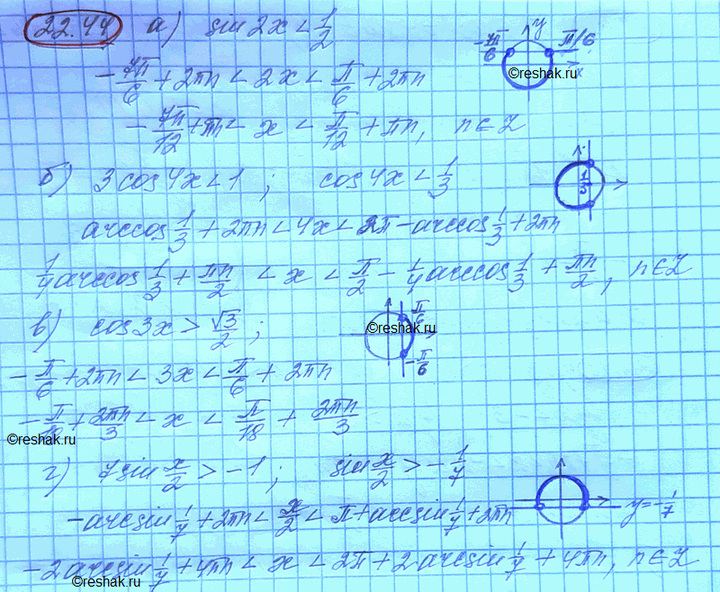 22.44 а) sin 2x < 1/2
-7π/6 + 2πn < 2x < π/6 + 2πn
-7π/12 + πn < x < π/12 + πn, n∈Z
-7π/6 π/6 y x
©reshak.ru
б) 3cos4x < 1 ; cos4x < 1/3
1/3
arccos 1/3 + 2πn < 4x < 2π - arccos 1/3 + 2πn
1/4 arccos 1/3 + πn/2 < x < π/2 - 1/4 arccos 1/3 + πn/2, n∈Z
в) cos3x > √3/2 ;
π/6 -π/6
©reshak.ru
-π/6 + 2πn < 3x < π/6 + 2πn
-π/18 + 2πn/3 < x < π/18 + 2πn/3
©reshak.ru
г) 7sin x/2 > -1 ; sin x/2 > -1/7
-arcsin 1/7 + 2πn < x/2 < π + arcsin 1/7 + 2πn
y = -1/7
-2arcsin 1/7 + 4πn < x < 2π + 2arcsin 1/7 + 4πn, n∈Z
©reshak.ru